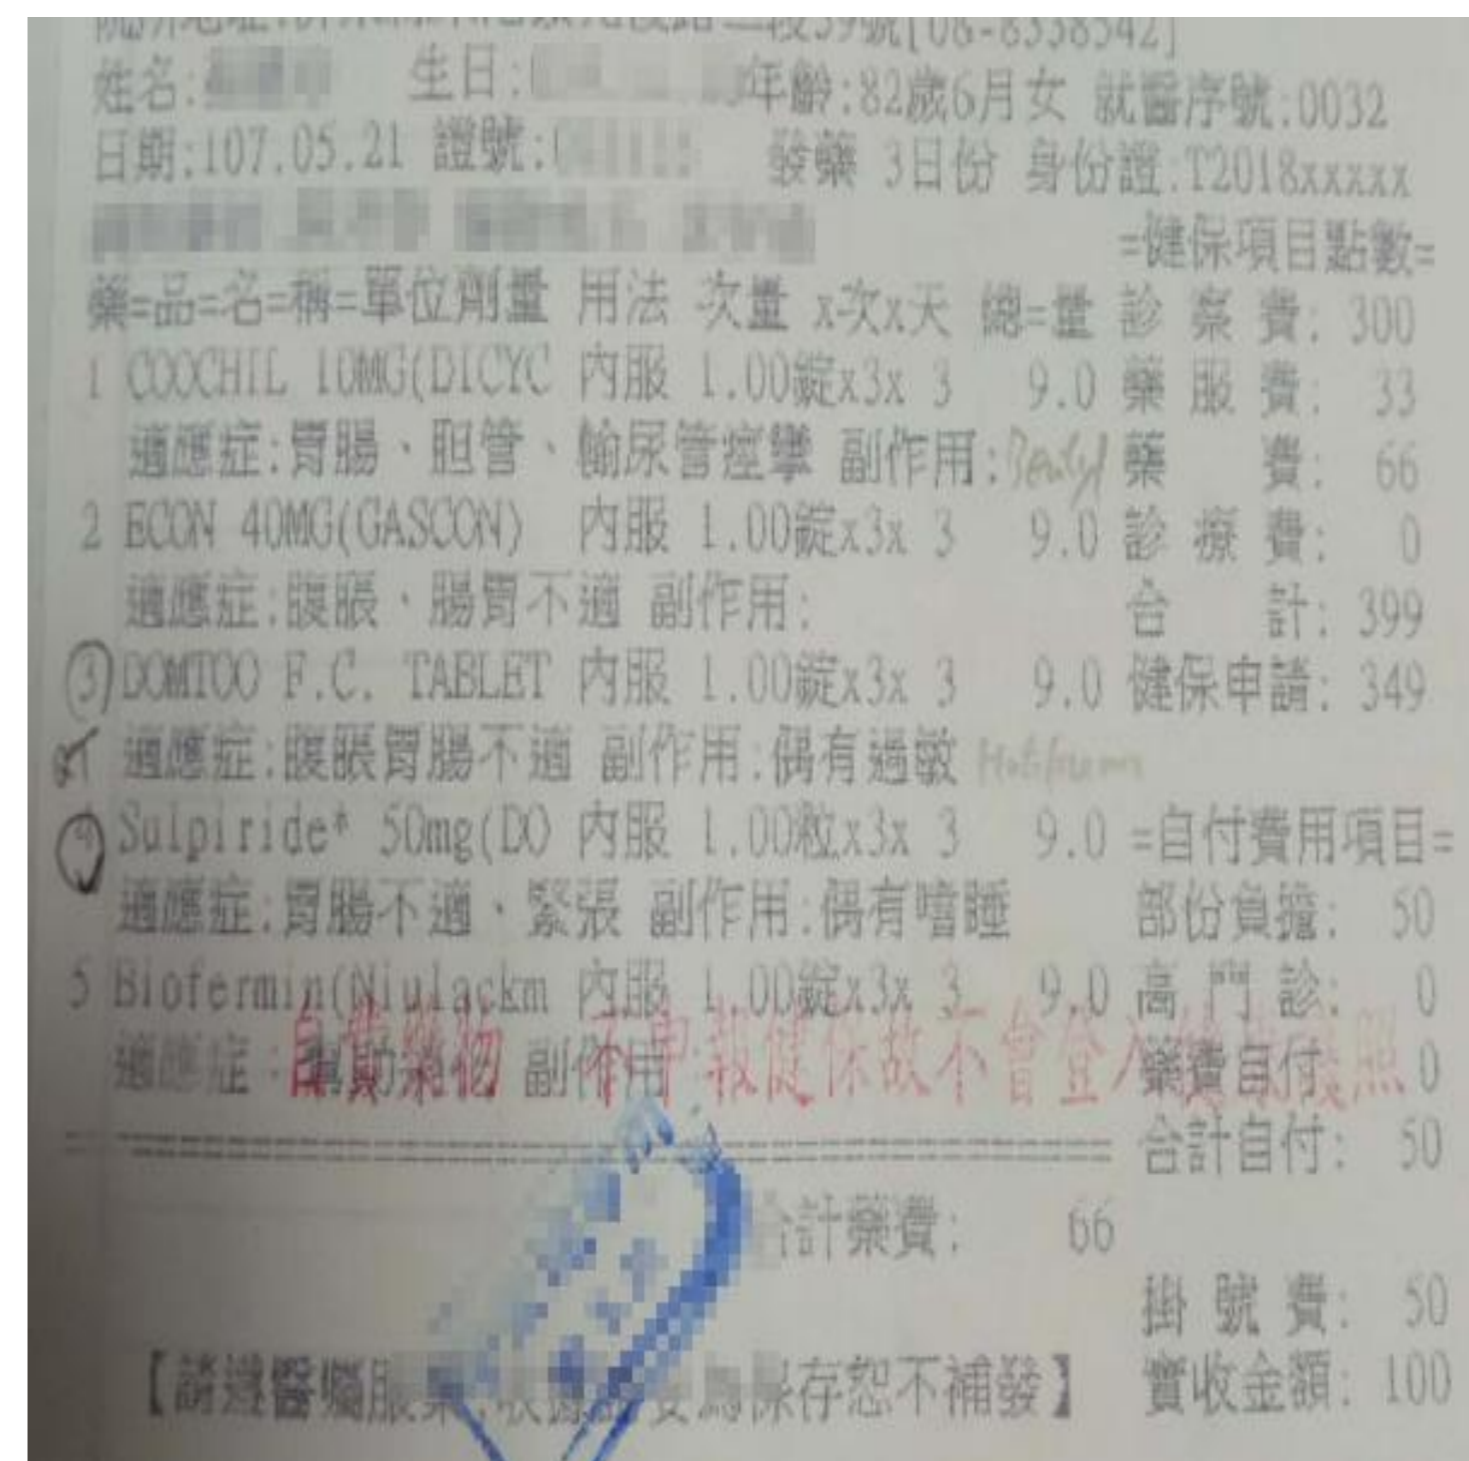 段39號[08-8338542]
姓名: 生日: 年齡:82歲6月女 就醫序號:0032
日期:107.05.21 證號: 發藥 3日份 身份證:T2018xxxxx
=健保項目點數=
藥=品=名=稱=單位劑量 用法 次量 x次x天 總=量 診 察 費: 300
1 COOCHIL 10MG(DICYC 內服 1.00錠x3x 3 9.0 藥 服 費: 33
適應症:胃腸、胆管、輸尿管痙攣 副作用: Bentyl 藥 費: 66
2 ECON 40MG(GASCON) 內服 1.00錠x3x 3 9.0 診 療 費: 0
適應症:腹脹、腸胃不適 副作用: 合 計: 399
3 DOMTOO F.C. TABLET 內服 1.00錠x3x 3 9.0 健保申請: 349
適應症:腹脹胃腸不適 副作用:偶有過敏
4 Sulpiride* 50mg(DO 內服 1.00粒x3x 3 9.0 =自付費用項目=
適應症:胃腸不適、緊張 副作用:偶有嗜睡 部份負擔: 50
5 Biofermin(Niulackm 內服 1.00錠x3x 3 9.0 高 門 診: 0
適應症:幫助藥物 副作用: 藥費自付: 0
自費藥物 不申報健保故不會登入
合計自付: 50
合計藥費: 66
掛 號 費: 50
【請遵醫囑服藥, 保存恕不補發】 實收金額: 100